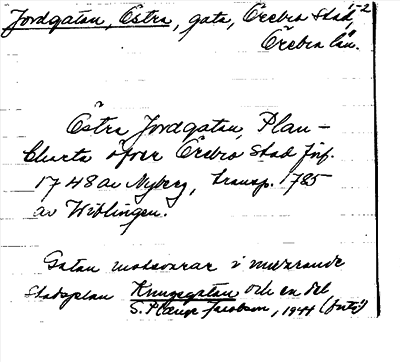 Jordgatan, Östra, gata, Örebro Stad,
Örebro län.
Östra Jordgatan, Plan-
Charta öfver Örebro Stad förf.
1748 av Nyberg, transp. 1785
av Wiblingen.
Gatan motsvarar i nuvarande
Stadsplan Kungsgatan och en del
S. Jacobson, 1944